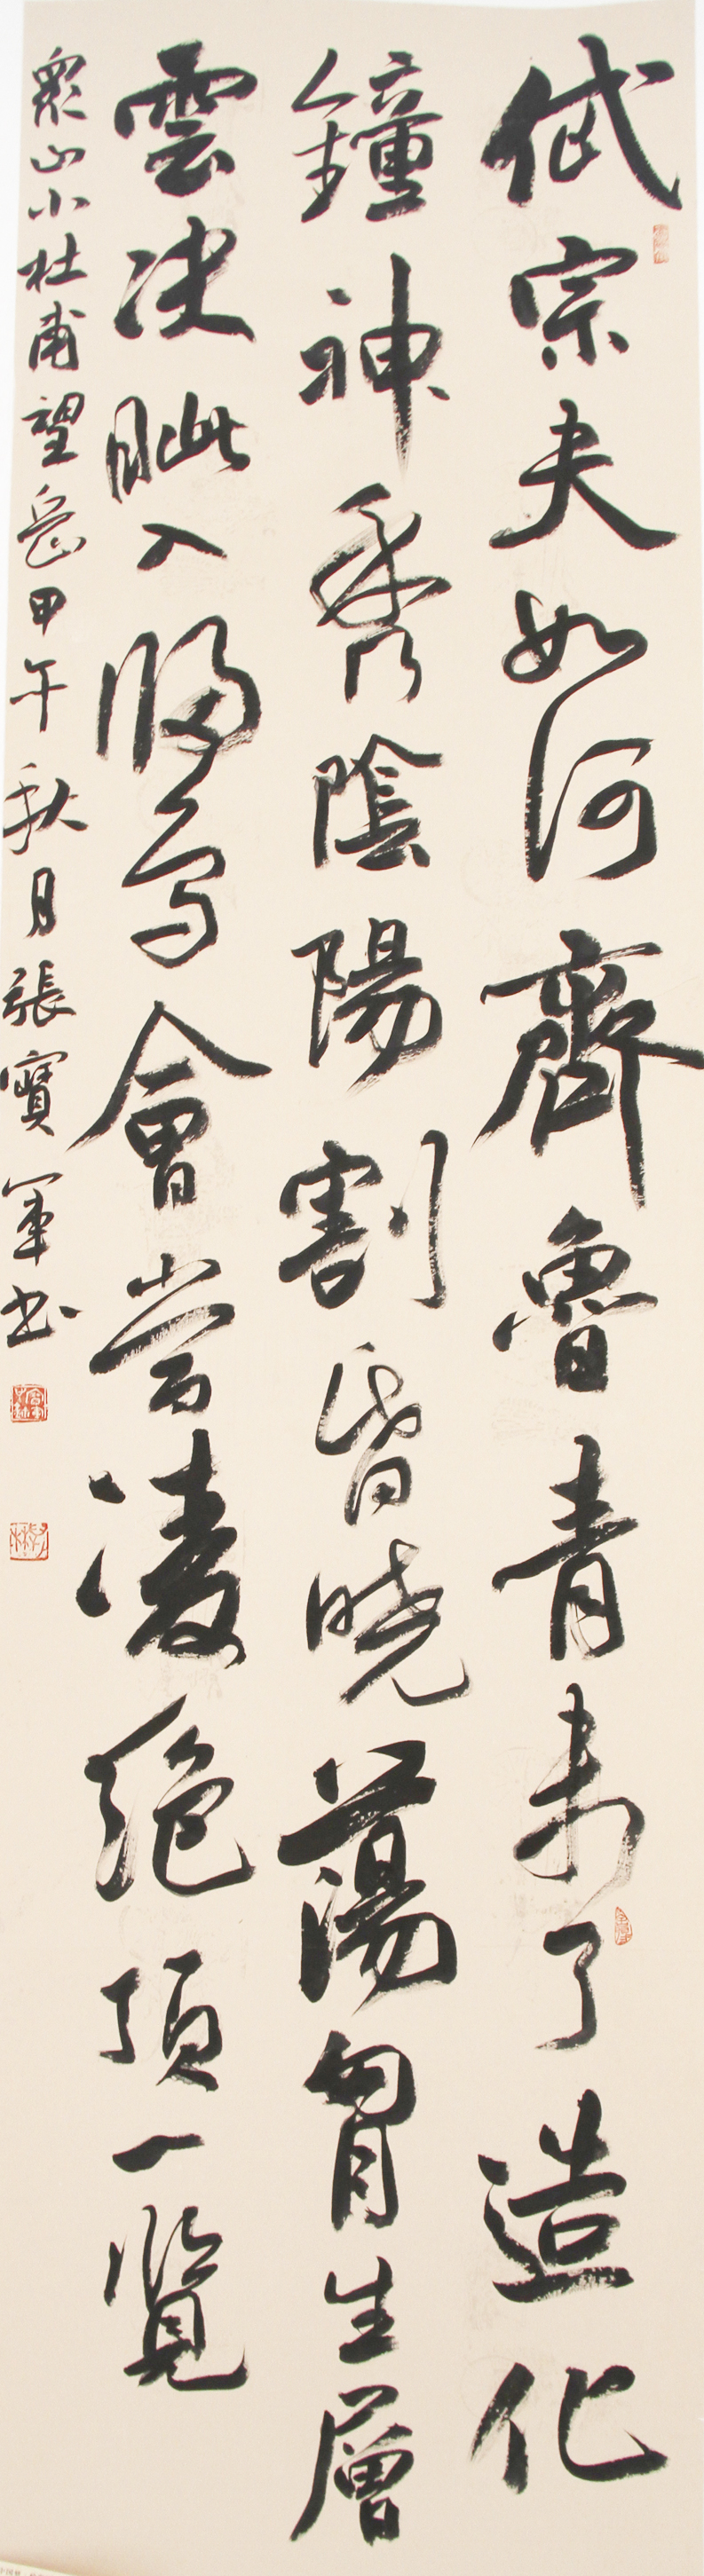 岱宗夫如何齊魯青未了造化
鐘神秀陰陽割昏曉蕩胷生層
雲決眦入歸鳥會當凌絕頂一覽
眾山小杜甫望岳甲午秋月張寶軍书